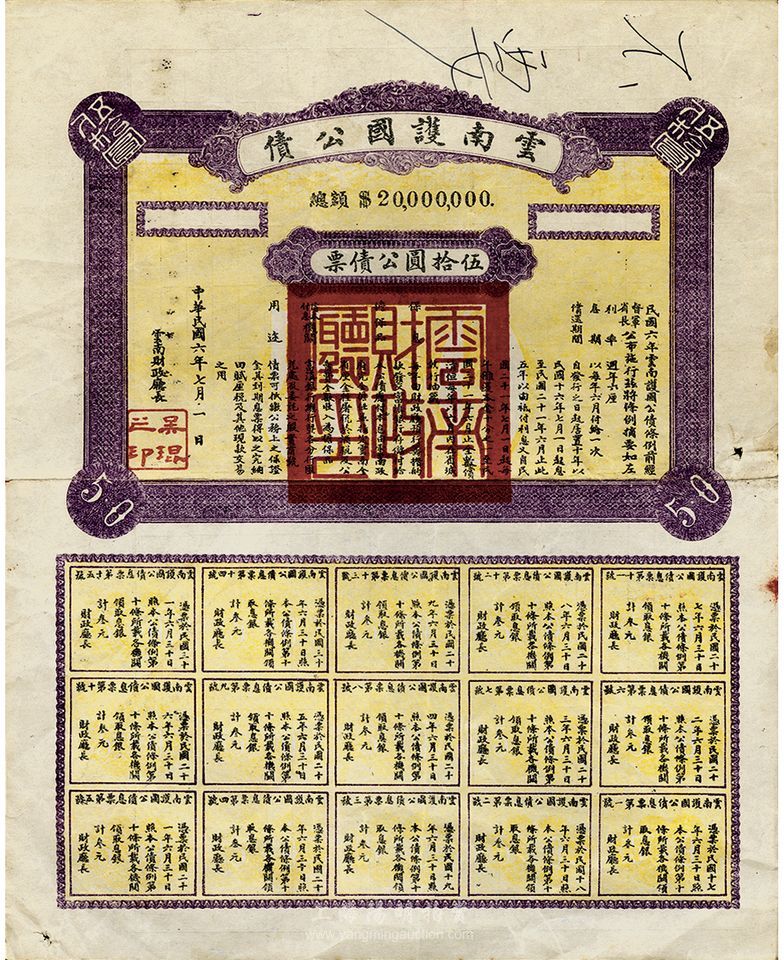 雲南護國公債
伍拾圓
伍拾圓
總額 幣20,000,000.
伍拾圓公債票
民國六年雲南護國公債條例前經
督軍省長公布施行茲將條例摘要如左
利率 週年六厘
息期 以每年六月付給一次
償還期間 自發行之日起居置十年以
民國十六年七月一日起息
至民國二十一年六月止此
五年以內祗付利息又自民
用途 債票可抵繳公務上之保證
金其到期息票得取之完納
田賦厘稅及其他現款交易
之用
中華民國六年七月一日
雲南財政廳長
吳琨之印
50
50
雲南護國公債息票第十一號
憑票於民國二十
七年六月三十日
照本公債條例第
十條所載各機關
領取息銀
計叁元
財政廳長
雲南護國公債息票第十二號
憑票於民國二十
八年六月三十日
照本公債條例第
十條所載各機關
領取息銀
計叁元
財政廳長
雲南護國公債息票第十三號
憑票於民國二十
九年六月三十日
照本公債條例第
十條所載各機關
領取息銀
計叁元
財政廳長
雲南護國公債息票第十四號
憑票於民國三十
年六月三十日照
本公債條例第十
條所載各機關領
取息銀
計叁元
財政廳長
雲南護國公債息票第十五號
憑票於民國三十
一年六月三十日
照本公債條例第
十條所載各機關
領取息銀
計叁元
財政廳長
雲南護國公債息票第六號
憑票於民國二十
二年六月三十日
照本公債條例第
十條所載各機關
領取息銀
計叁元
財政廳長
雲南護國公債息票第七號
憑票於民國二十
三年六月三十日
照本公債條例第
十條所載各機關
領取息銀
計叁元
財政廳長
雲南護國公債息票第八號
憑票於民國二十
四年六月三十日
照本公債條例第
十條所載各機關
領取息銀
計叁元
財政廳長
雲南護國公債息票第九號
憑票於民國二十
五年六月三十日
照本公債條例第
十條所載各機關
領取息銀
計叁元
財政廳長
雲南護國公債息票第十號
憑票於民國二十
六年六月三十日
照本公債條例第
十條所載各機關
領取息銀
計叁元
財政廳長
雲南護國公債息票第一號
憑票於民國十七
年六月三十日照
本公債條例第十
條所載各機關領
取息銀
計叁元
財政廳長
雲南護國公債息票第二號
憑票於民國十八
年六月三十日照
本公債條例第十
條所載各機關領
取息銀
計叁元
財政廳長
雲南護國公債息票第三號
憑票於民國十九
年六月三十日照
本公債條例第十
條所載各機關領
取息銀
計叁元
財政廳長
雲南護國公債息票第四號
憑票於民國二十
年六月三十日照
本公債條例第十
條所載各機關領
取息銀
計叁元
財政廳長
雲南護國公債息票第五號
憑票於民國二十
一年六月三十日
照本公債條例第
十條所載各機關
領取息銀
計叁元
財政廳長
www.yangmingauction.com